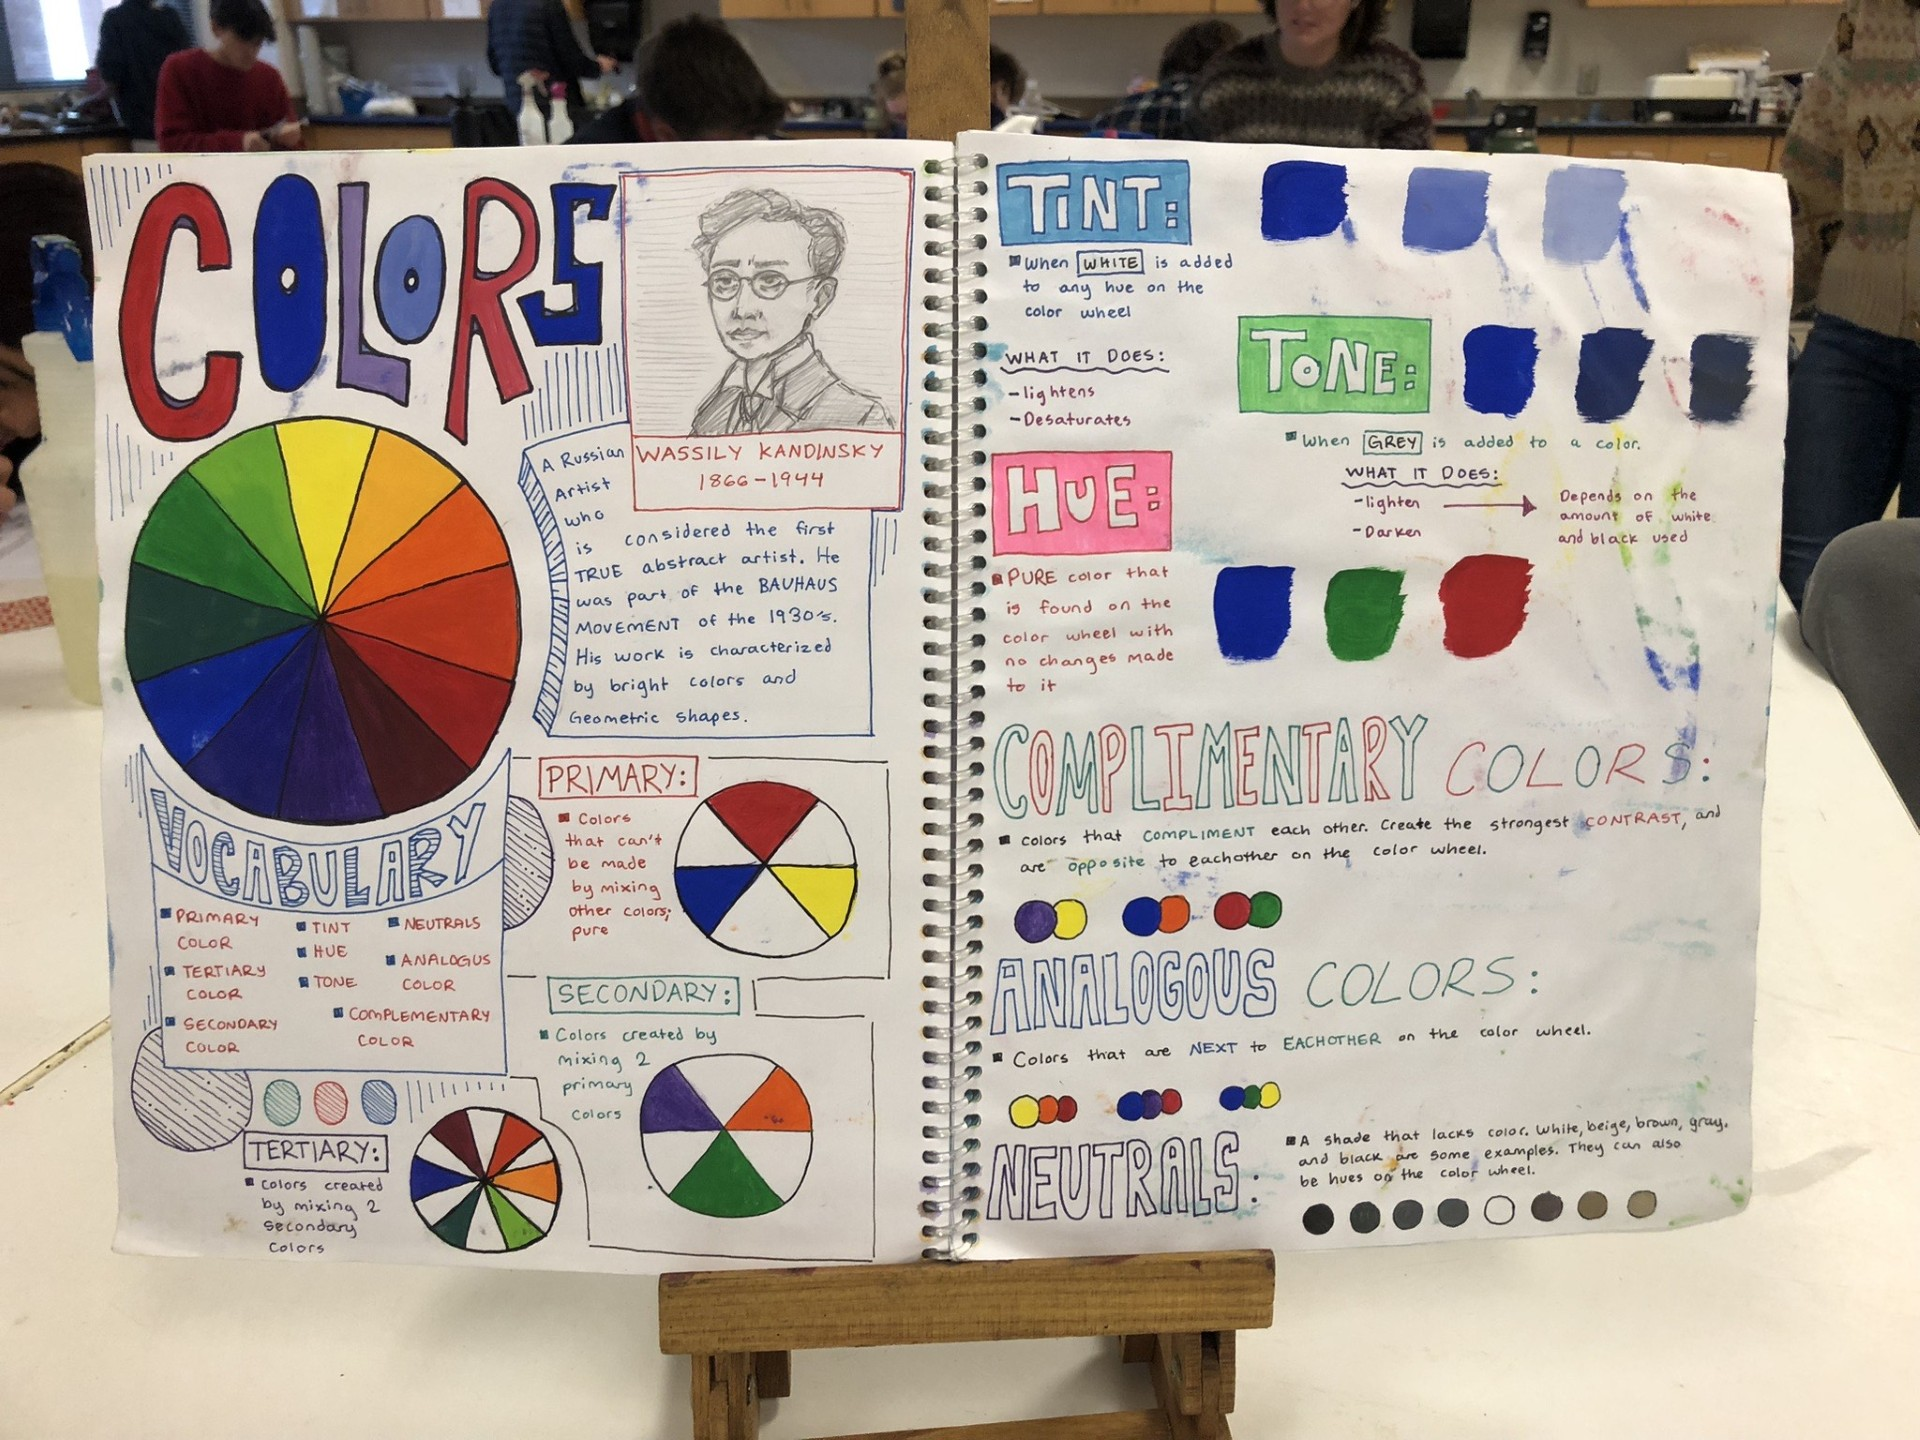 COLORS
WASSILY KANDINSKY
1866-1944
A Russian
Artist
who
is considered the first
TRUE abstract artist. He
was part of the BAUHAUS
MOVEMENT of the 1930's.
His work is characterized
by bright colors and
Geometric shapes.
VOCABULARY
PRIMARY
COLOR
TERTIARY
COLOR
SECONDARY
COLOR
TINT
HUE
TONE
NEUTRALS
ANALOGUS
COLOR
COMPLEMENTARY
COLOR
PRIMARY:
Colors
that can't
be made
by mixing
other colors;
pure
SECONDARY:
Colors created by
mixing 2
primary
colors
TERTIARY:
Colors created
by mixing 2
secondary
colors
TINT:
When WHITE is added
to any hue on the
color wheel
WHAT IT DOES:
-lightens
-Desaturates
TONE:
When GREY is added to a color.
WHAT IT DOES:
-lighten
-Darken
Depends on the
amount of white
and black used
HUE:
PURE color that
is found on the
color wheel with
no changes made
to it
COMPLIMENTARY COLORS:
colors that COMPLIMENT each other. Create the strongest CONTRAST, and
are opposite to eachother on the color wheel.
ANALOGOUS COLORS:
Colors that are NEXT to EACHOTHER on the color wheel.
NEUTRALS:
A shade that lacks color. White, beige, brown, gray,
and black are some examples. They can also
be hues on the color wheel.